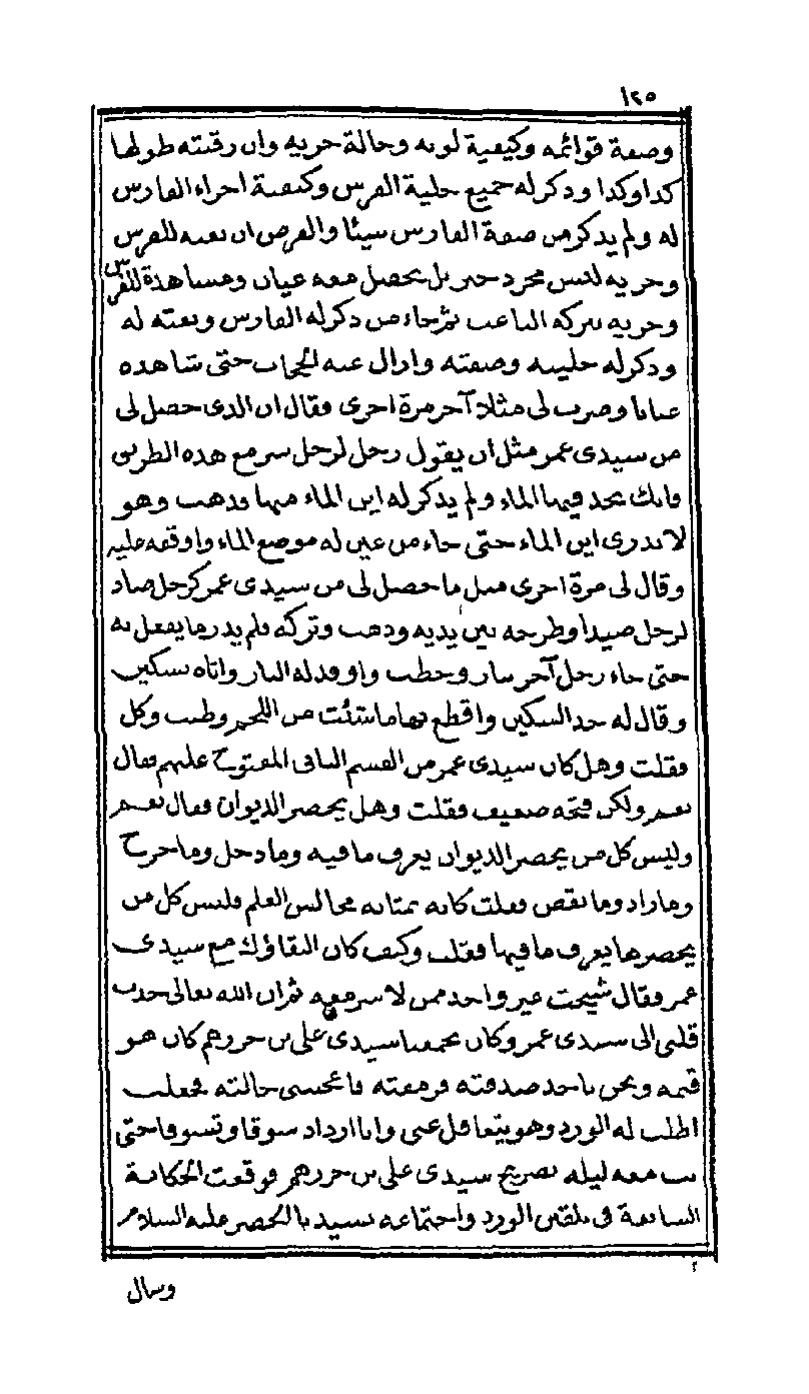 ١٢٥
وصفة قوائمه وكيفية لونه وحالة جريه وان رقبته طولها
كذا وكذا وذكر له جميع حلية الفرس وكيفية اجراء الفارس
له ولم يذكر من صفة الفارس شيئا والغرض ان نعته للفرس
وجريه ليس مجرد خبر بل يحصل معه عيان ومشاهدة للفرس
وجريه ببركة الناعت ثم جاء من ذكر له الفارس ونعته له
وذكر له حليته وصفته وازال عنه الحجاب حتى شاهده
عيانا وضرب لى مثلا آخر مرة اخرى فقال ان الذى حصل لى
من سيدى عمر مثل ان يقول رجل لرجل سر مع هذه الطريق
فانك تجد فيها الماء ولم يذكر له اين الماء منها فذهب وهو
لا يدرى اين الماء حتى جاء من عين له موضع الماء واوقفه عليه
وقال لى مرة اخرى مثل ما حصل لى من سيدى عمر كرجل صاد
لرجل صيدا وطرحه بين يديه وذهب وتركه فلم يدر ما يفعل به
حتى جاء رجل آخر بنار وحطب واوقد له النار واتاه بسكين
وقال له خذ السكين واقطع بها ما شئت من اللحم وطب وكل
فقلت وهل كان سيدى عمر من القسم الباقى المفتوح عليهم فقال
نعم ولكن فتحه ضعيف فقلت وهل يحضر الديوان فقال نعم
وليس كل من يحضر الديوان يعرف ما فيه وما دخل وما خرج
وما زاد وما نقص فقلت كانه بمثابة مجالس العلم فليس كل من
يحضرها يعرف ما فيها فقلت وكيف كان التقاؤك مع سيدى
عمر فقال شيخت غير واحد ممن لا سر معه ثم ان الله تعالى جذب
قلبى الى سيدى عمر وكان يجمعنا سيدى على بن حرزهم كان هو
قيمه ونحن ناخذ صدقته فرمقته فاعجبنى حالته فجعلت
اطلب له الورد وهو يتغافل عنى وانا ازداد شوقا وتشوفا حتى
بت معه ليلة بضريح سيدى على بن حرزهم فوقعت الحكاية
السابقة فى تلقين الورد واجتماعه بسيدنا الخضر عليه السلام
وسال